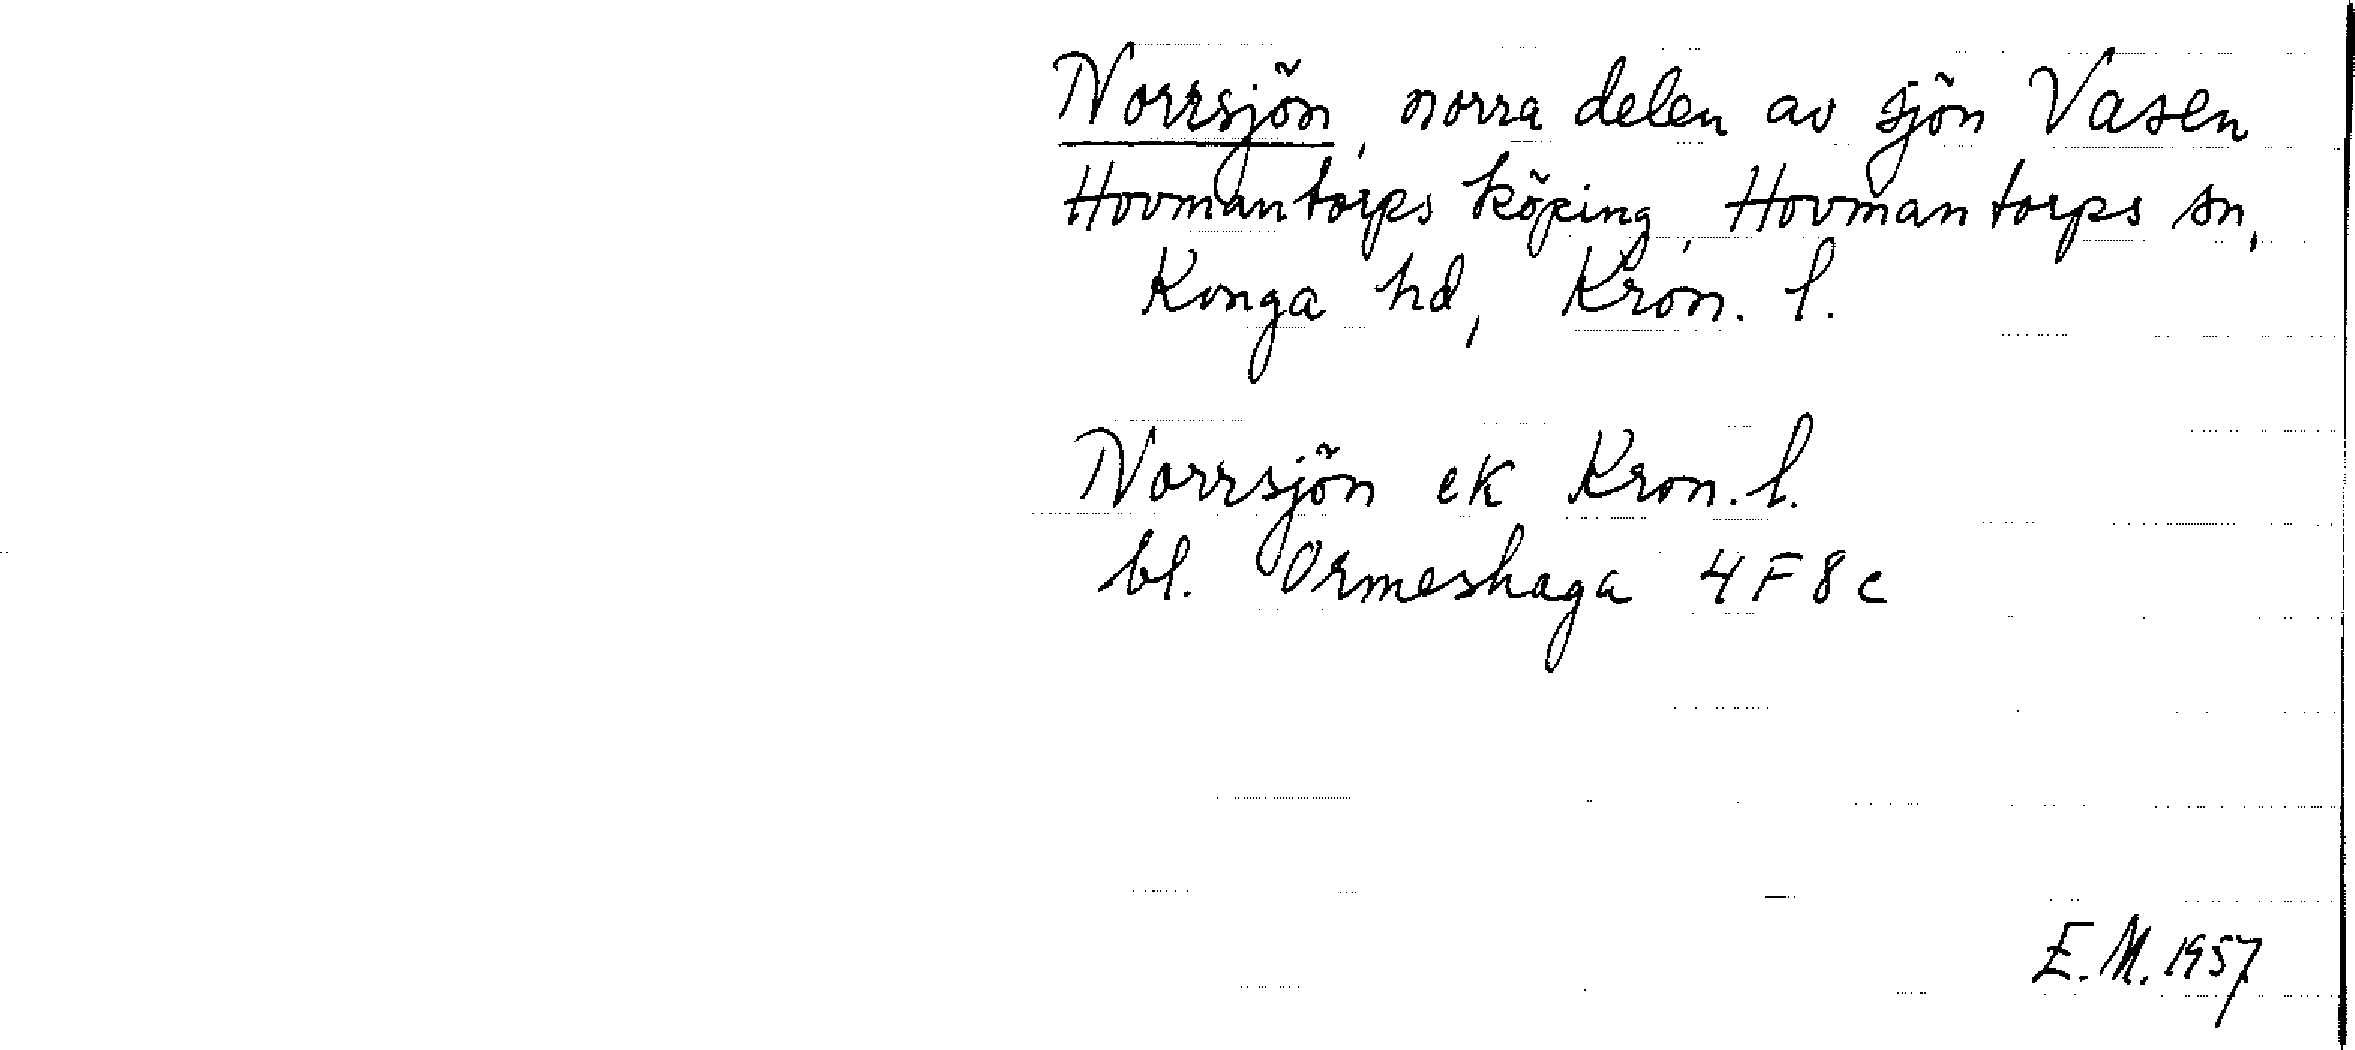 Norrsjön, norra delen av sjön Vasen
Hovmantorps köping, Hovmantorps sn,
Konga hd, Kron. l.
Norrsjön ek Kron. l.
bl. Ormeshaga 4F8c
E.M. 1957